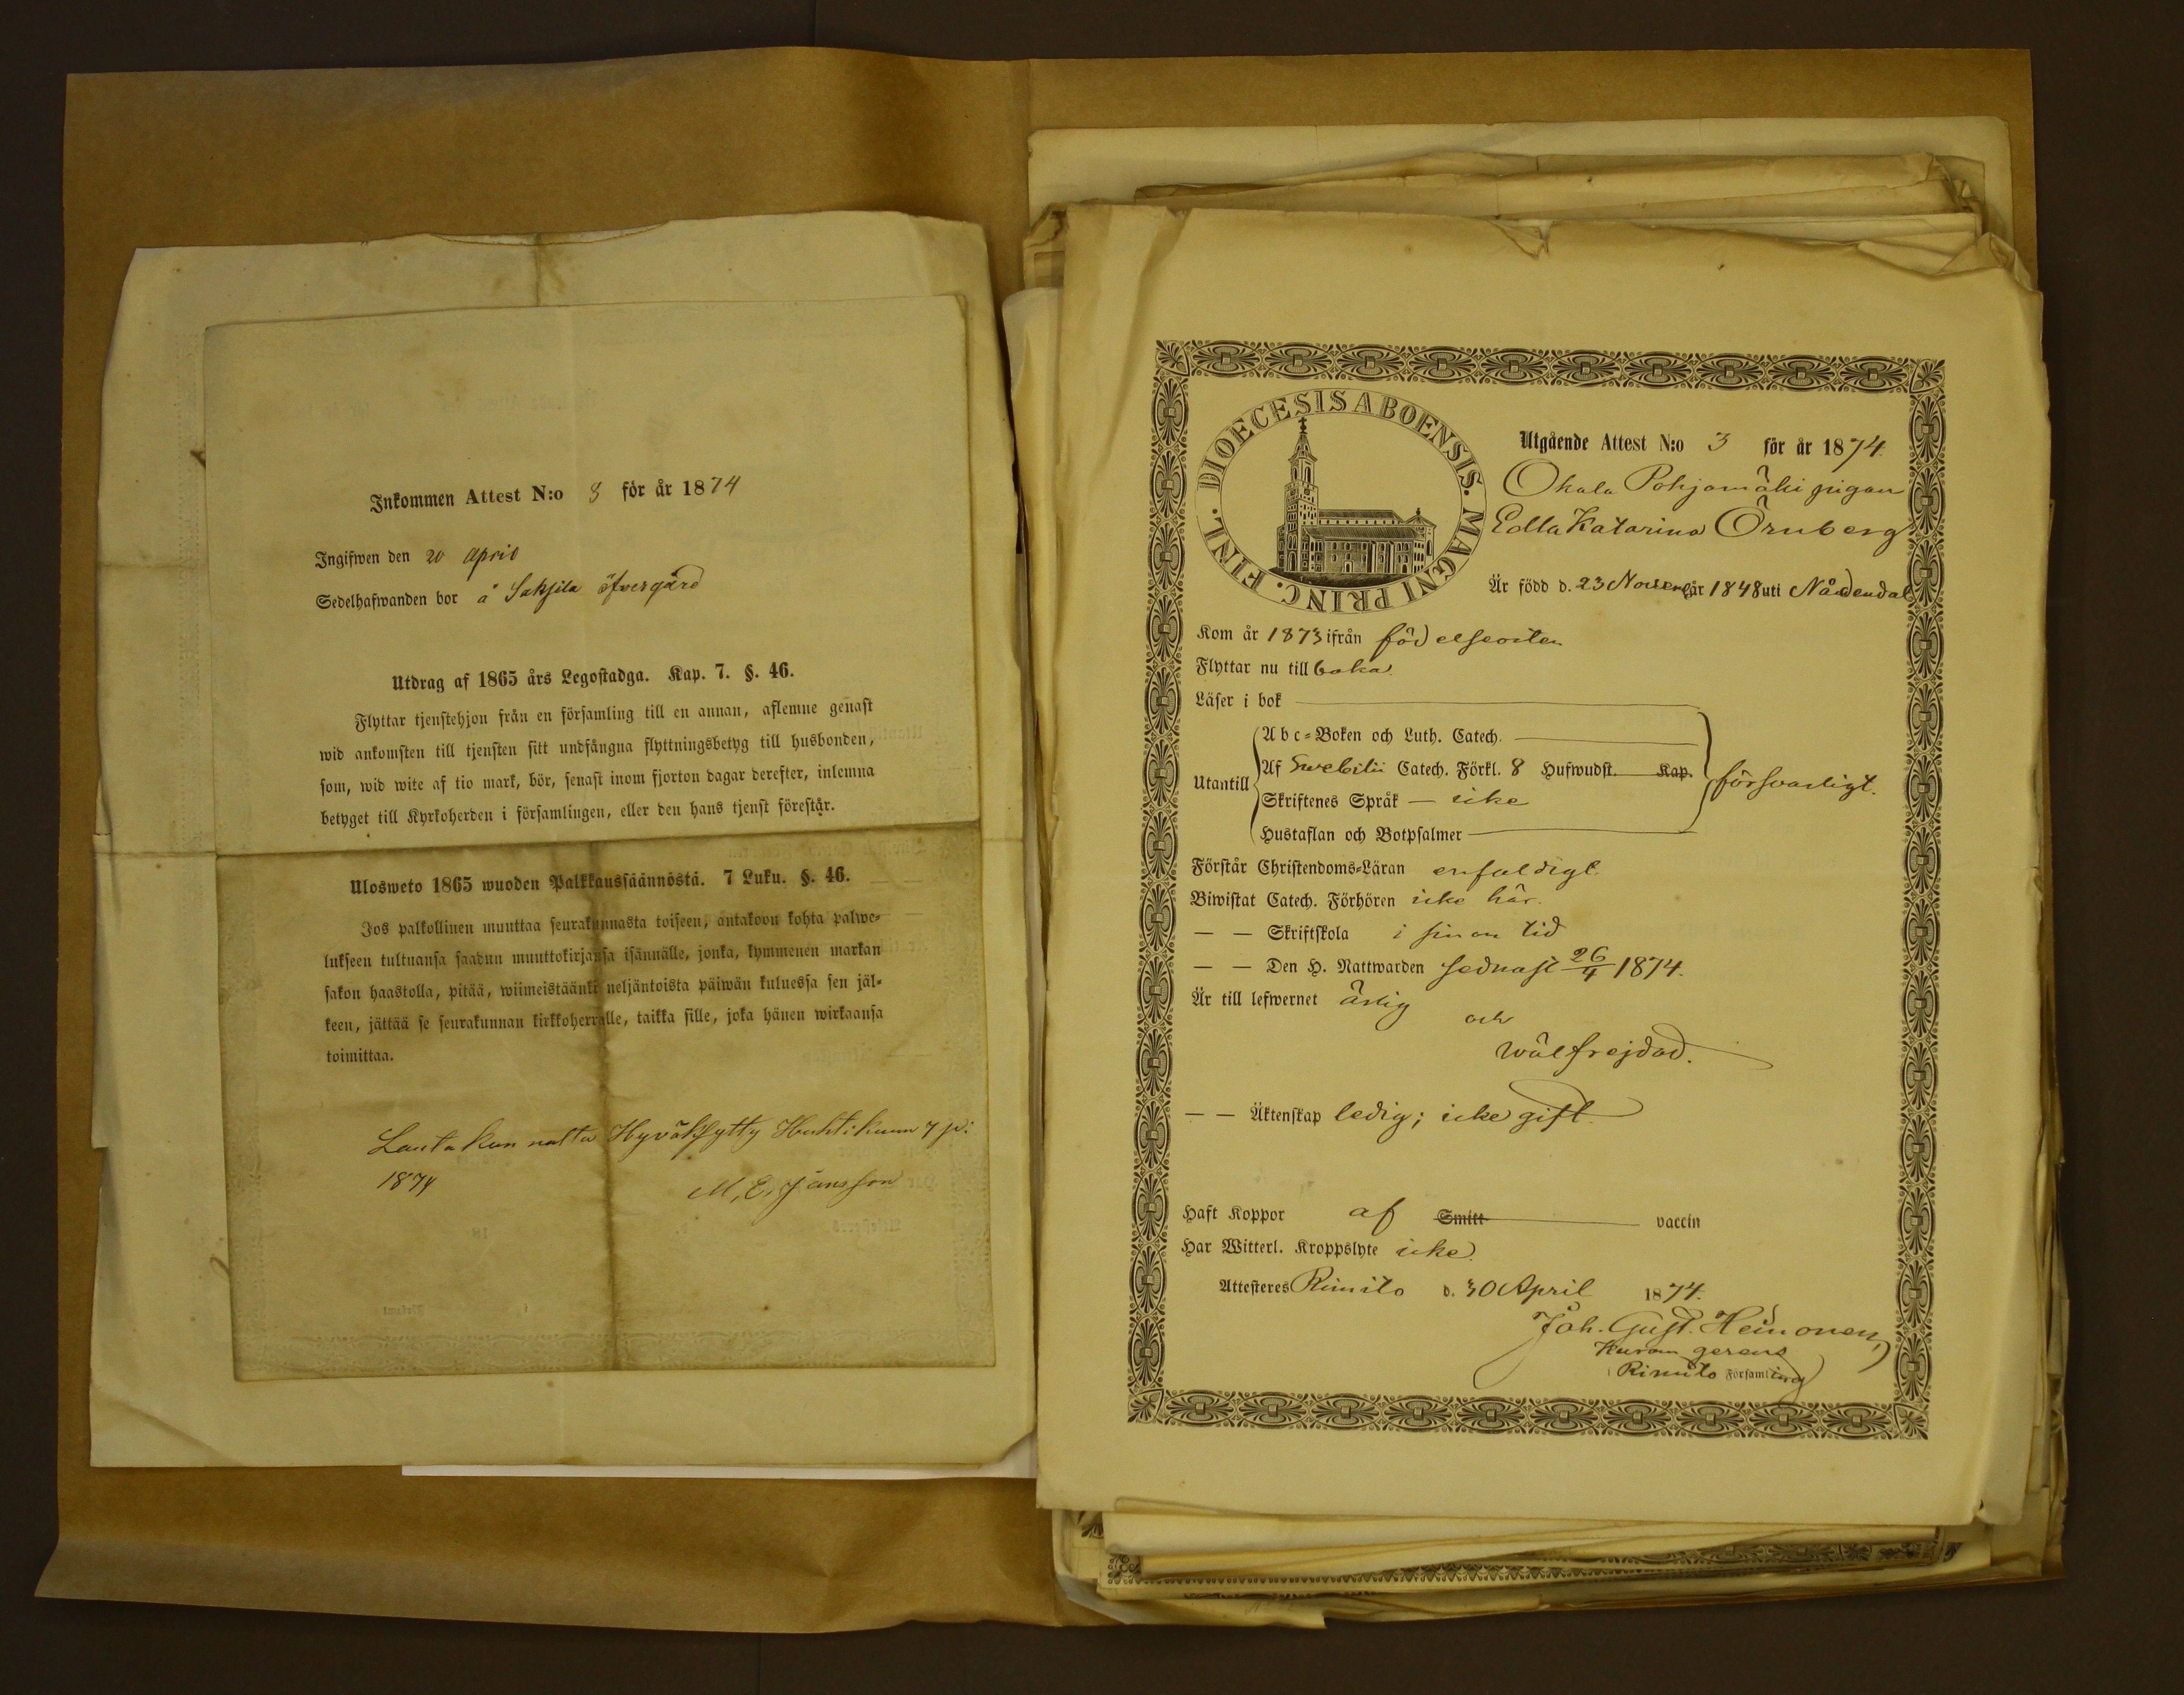 Inkommen Attest N:o 8 för år 1874
Ingifwen den 20 April
Sedelhafwanden bor å Saksila öfvergård
Utdrag af 1865 års Legostadga. Kap. 7. §. 46.
Flyttar tjenstehjon från en församling till en annan, aflemne genast
wid ankomsten till tjensten sitt undfångna flyttningsbetyg till husbonden,
som, wid wite af tio mark, bör, senast inom fjorton dagar derefter, inlemna
betyget till Kyrkoherden i församlingen, eller den hans tjenst förestår.
Ulosweto 1865 wuoden Palkkaussäännöstä. 7 Luku. §. 46.
Jos palkollinen muuttaa seurakunnasta toiseen, antakoon kohta palwe-
lukseen tultuansa saadun muuttokirjansa isännälle, jonka, kymmenen markan
sakon haastolla, pitää, wiimeistäänki neljäntoista päiwän kuluessa sen jäl-
keen, jättää se seurakunnan kirkkoherralle, taikka sille, joka hänen wirkaansa
toimittaa.
Lautakunnalta Hyväksytty Huhtikuun 7 p:
1874 M, E, Jansson
DIOECESIS ABOENSIS. MAGNI PRINC. FINL.
Utgående Attest N:o 3 för år 1874.
Okala Pohjamäki pigan
Edla Katarina Örnberg
Är född d. 23 Novemb år 1848 uti Nådendal
Kom år 1873 ifrån födelseorten
Flyttar nu till baka
Läser i bok
Utantill
Abc-Boken och Luth. Catech.
Af Swebilii Catech. Förkl. 8 Hufwudst. Kap.
Skriftenes Språk — icke
Hustaflan och Botpsalmer
försvarligt.
Förstår Christendoms-Läran enfaldigt.
Biwistat Catech. Förhören icke här.
— — Skriftskola i sin on tid
— — Den H. Nattwarden sednast 26/4 1874.
Är till lefwernet ärlig
och
wälfrejdad.
— — Äktenskap ledig; icke gift.
Haft Koppor af Smitt vaccin
Har Witterl. Kroppslyte icke.
Attesteres Rimito d. 30 April 1874.
Joh. Gust. Heinonen,
Kuram gerens
Rimito Församling